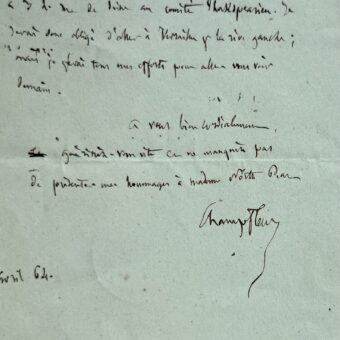 à 3 h. rue de Seine au comité Shakspearien. Je
serai donc obligé d'aller à Versailles par la rive gauche ;
mais je ferai tous mes efforts pour aller vous voir
demain.
à vous bien cordialement,
guérissez-vous vite et ne manquez pas
de présenter mes hommages à madame
Champfleury
avril 64.